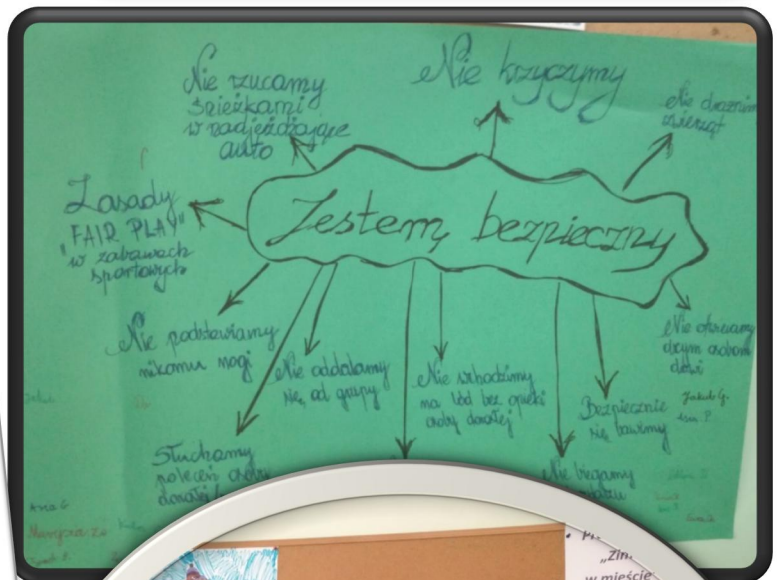 Nie krzyczymy
Nie rzucamy
śnieżkami
w nadjeżdżające
auto
Nie drażnimy
zwierząt
Zasady
"FAIR PLAY"
w zabawach
sportowych
Jestem bezpieczny
Nie podstawiamy
nikomu nogi
Nie oddalamy
się od grupy
Nie wchodzimy
na lód bez opieki
osoby dorosłej
Bezpiecznie
się bawimy
Nie otwieramy
obcym osobom
drzwi
Jakub G.
Słuchamy
poleceń osoby
dorosłej
Nie biegamy
Ania G.
"Zim
w mieście